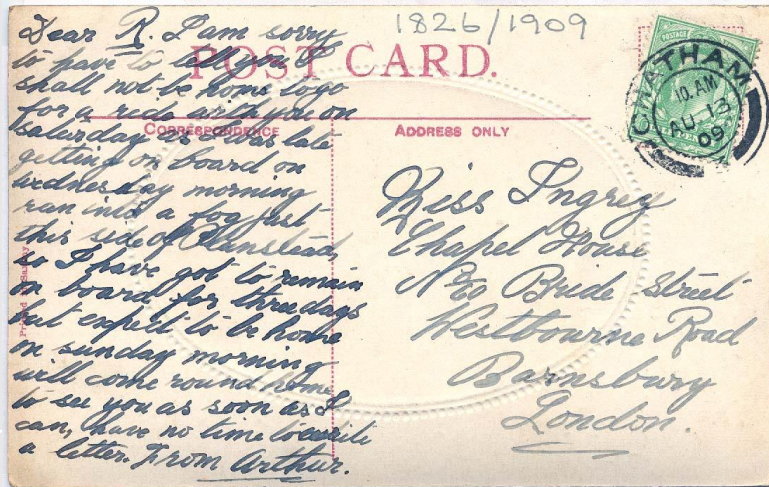 1826/1909
POST CARD.
CORRESPONDENCE
ADDRESS ONLY
POSTAGE
CHATHAM
10. AM
AU 13
09
Dear R. I am sorry
to have to tell you I
shall not be home to go
for a ride with you on
Saturday as I was late
getting on board on
wednesday morning
ran into a fog just
this side of
so I have got to remain
on board for three days
but expect to be home
on sunday morning
will come round home
to see you as soon as I
can, have no time to write
a letter. From Arthur.
Miss Ingrey
Chapel House
Bride Street
Westbourne Road
Barnsbury
London.
Printed in Saxony